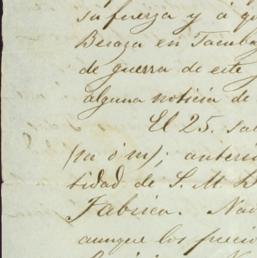 su fuerza y á qu
Beraza en Tacuba
de guerra de este
alguna noticia de
El 25. sa
tidad de S. M. B
Fabrica. Na
aunque los precio